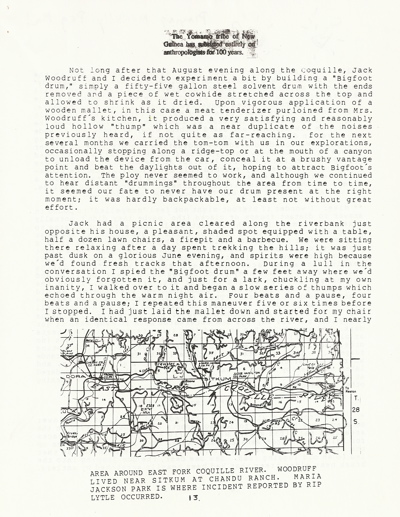 The Yomamo tribe of New
Guinea has subsisted entirely on
anthropologists for 100 years.
Not long after that August evening along the Coquille, Jack
Woodruff and I decided to experiment a bit by building a "Bigfoot
drum," simply a fifty-five gallon steel solvent drum with the ends
removed and a piece of wet cowhide stretched across the top and
allowed to shrink as it dried. Upon vigorous application of a
wooden mallet, in this case a meat tenderizer purloined from Mrs.
Woodruff's kitchen, it produced a very satisfying and reasonably
loud hollow "thump" which was a near duplicate of the noises
previously heard, if not quite as far-reaching. for the next
several months we carried the tom-tom with us in our explorations,
occasionally stopping along a ridge-top or at the mouth of a canyon
to unload the device from the car, conceal it at a brushy vantage
point and beat the daylights out of it, hoping to attract Bigfoot's
attention. The ploy never seemed to work, and although we continued
to hear distant "drummings" throughout the area from time to time,
it seemed our fate to never have our drum present at the right
moment; it was hardly backpackable, at least not without great
effort.
Jack had a picnic area cleared along the riverbank just
opposite his house, a pleasant, shaded spot equipped with a table,
half a dozen lawn chairs, a firepit and a barbecue. We were sitting
there relaxing after a day spent trekking the hills; it was just
past dusk on a glorious June evening, and spirits were high because
we'd found fresh tracks that afternoon. During a lull in the
conversation I spied the "Bigfoot drum" a few feet away where we'd
obviously forgotten it, and just for a lark, chuckling at my own
inanity, I walked over to it and began a slow series of thumps which
echoed through the warm night air. Four beats and a pause, four
beats and a pause; I repeated this maneuver five or six times before
I stopped. I had just laid the mallet down and started for my chair
when an identical response came from across the river, and I nearly
T.
28
S.
AREA AROUND EAST FORK COQUILLE RIVER. WOODRUFF
LIVED NEAR SITKUM AT CHANDU RANCH. MARIA
JACKSON PARK IS WHERE INCIDENT REPORTED BY RIP
LYTLE OCCURRED. 13.